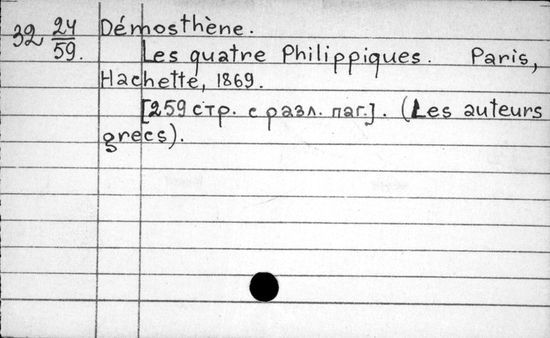 32 24/59. Démosthène.
Les quatre Philippiques. Paris,
Hachette, 1869.
[259 стр. с разл. паг.]. (Les auteurs
grecs).